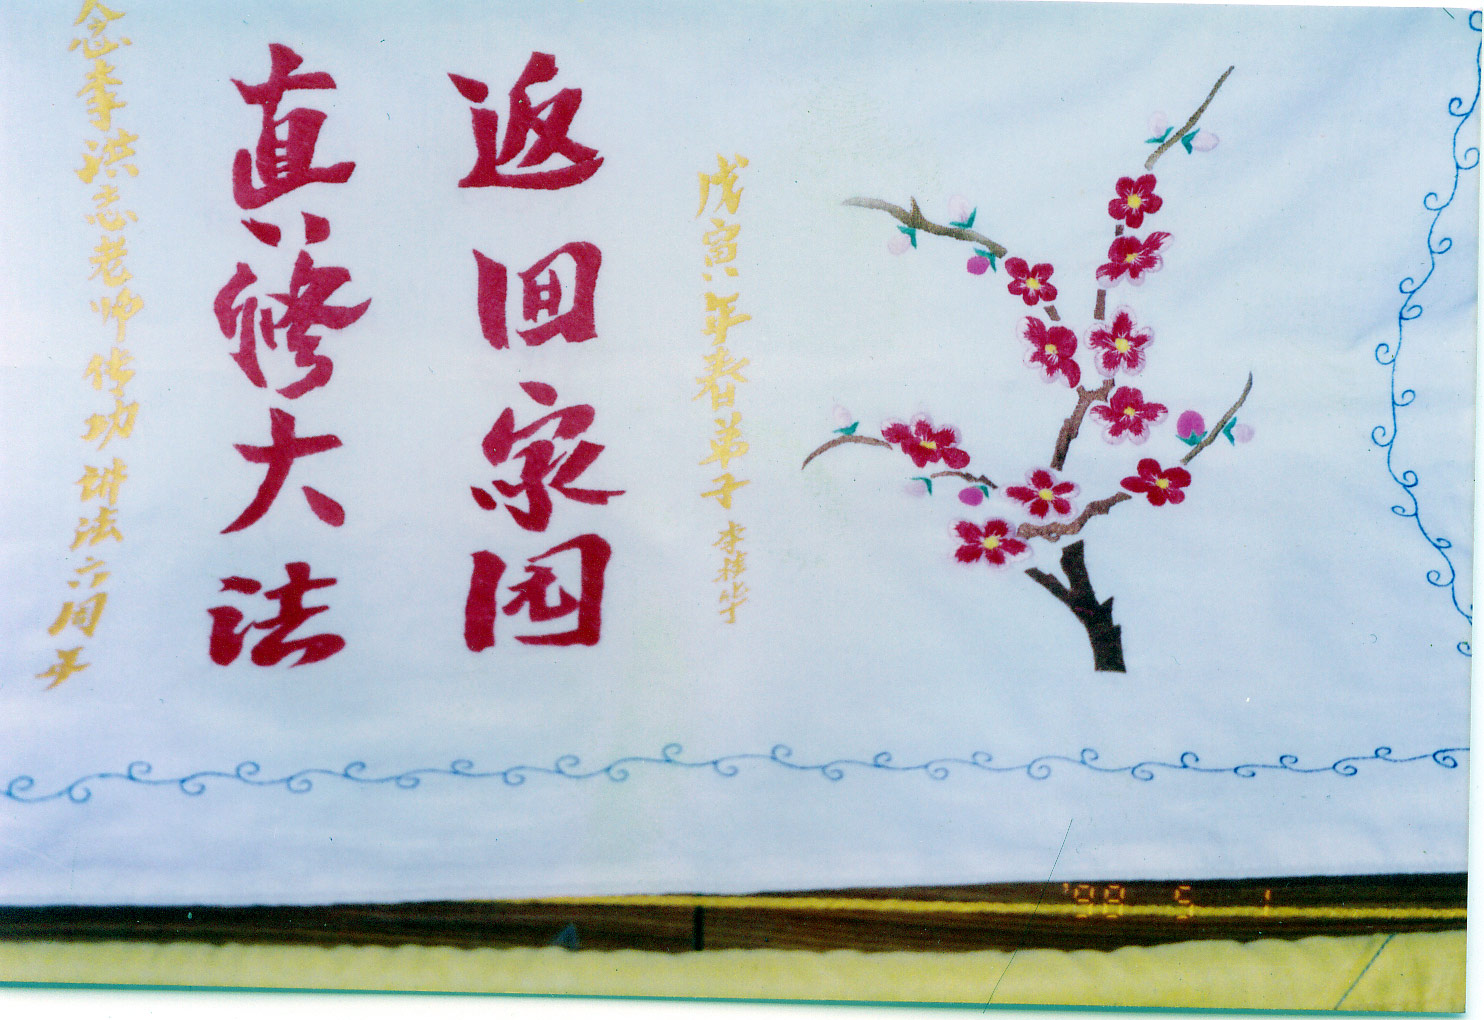 念李洪志老师传功讲法六周年
真修大法
返回家园
戊寅年春弟子李桂华
'98 5 1